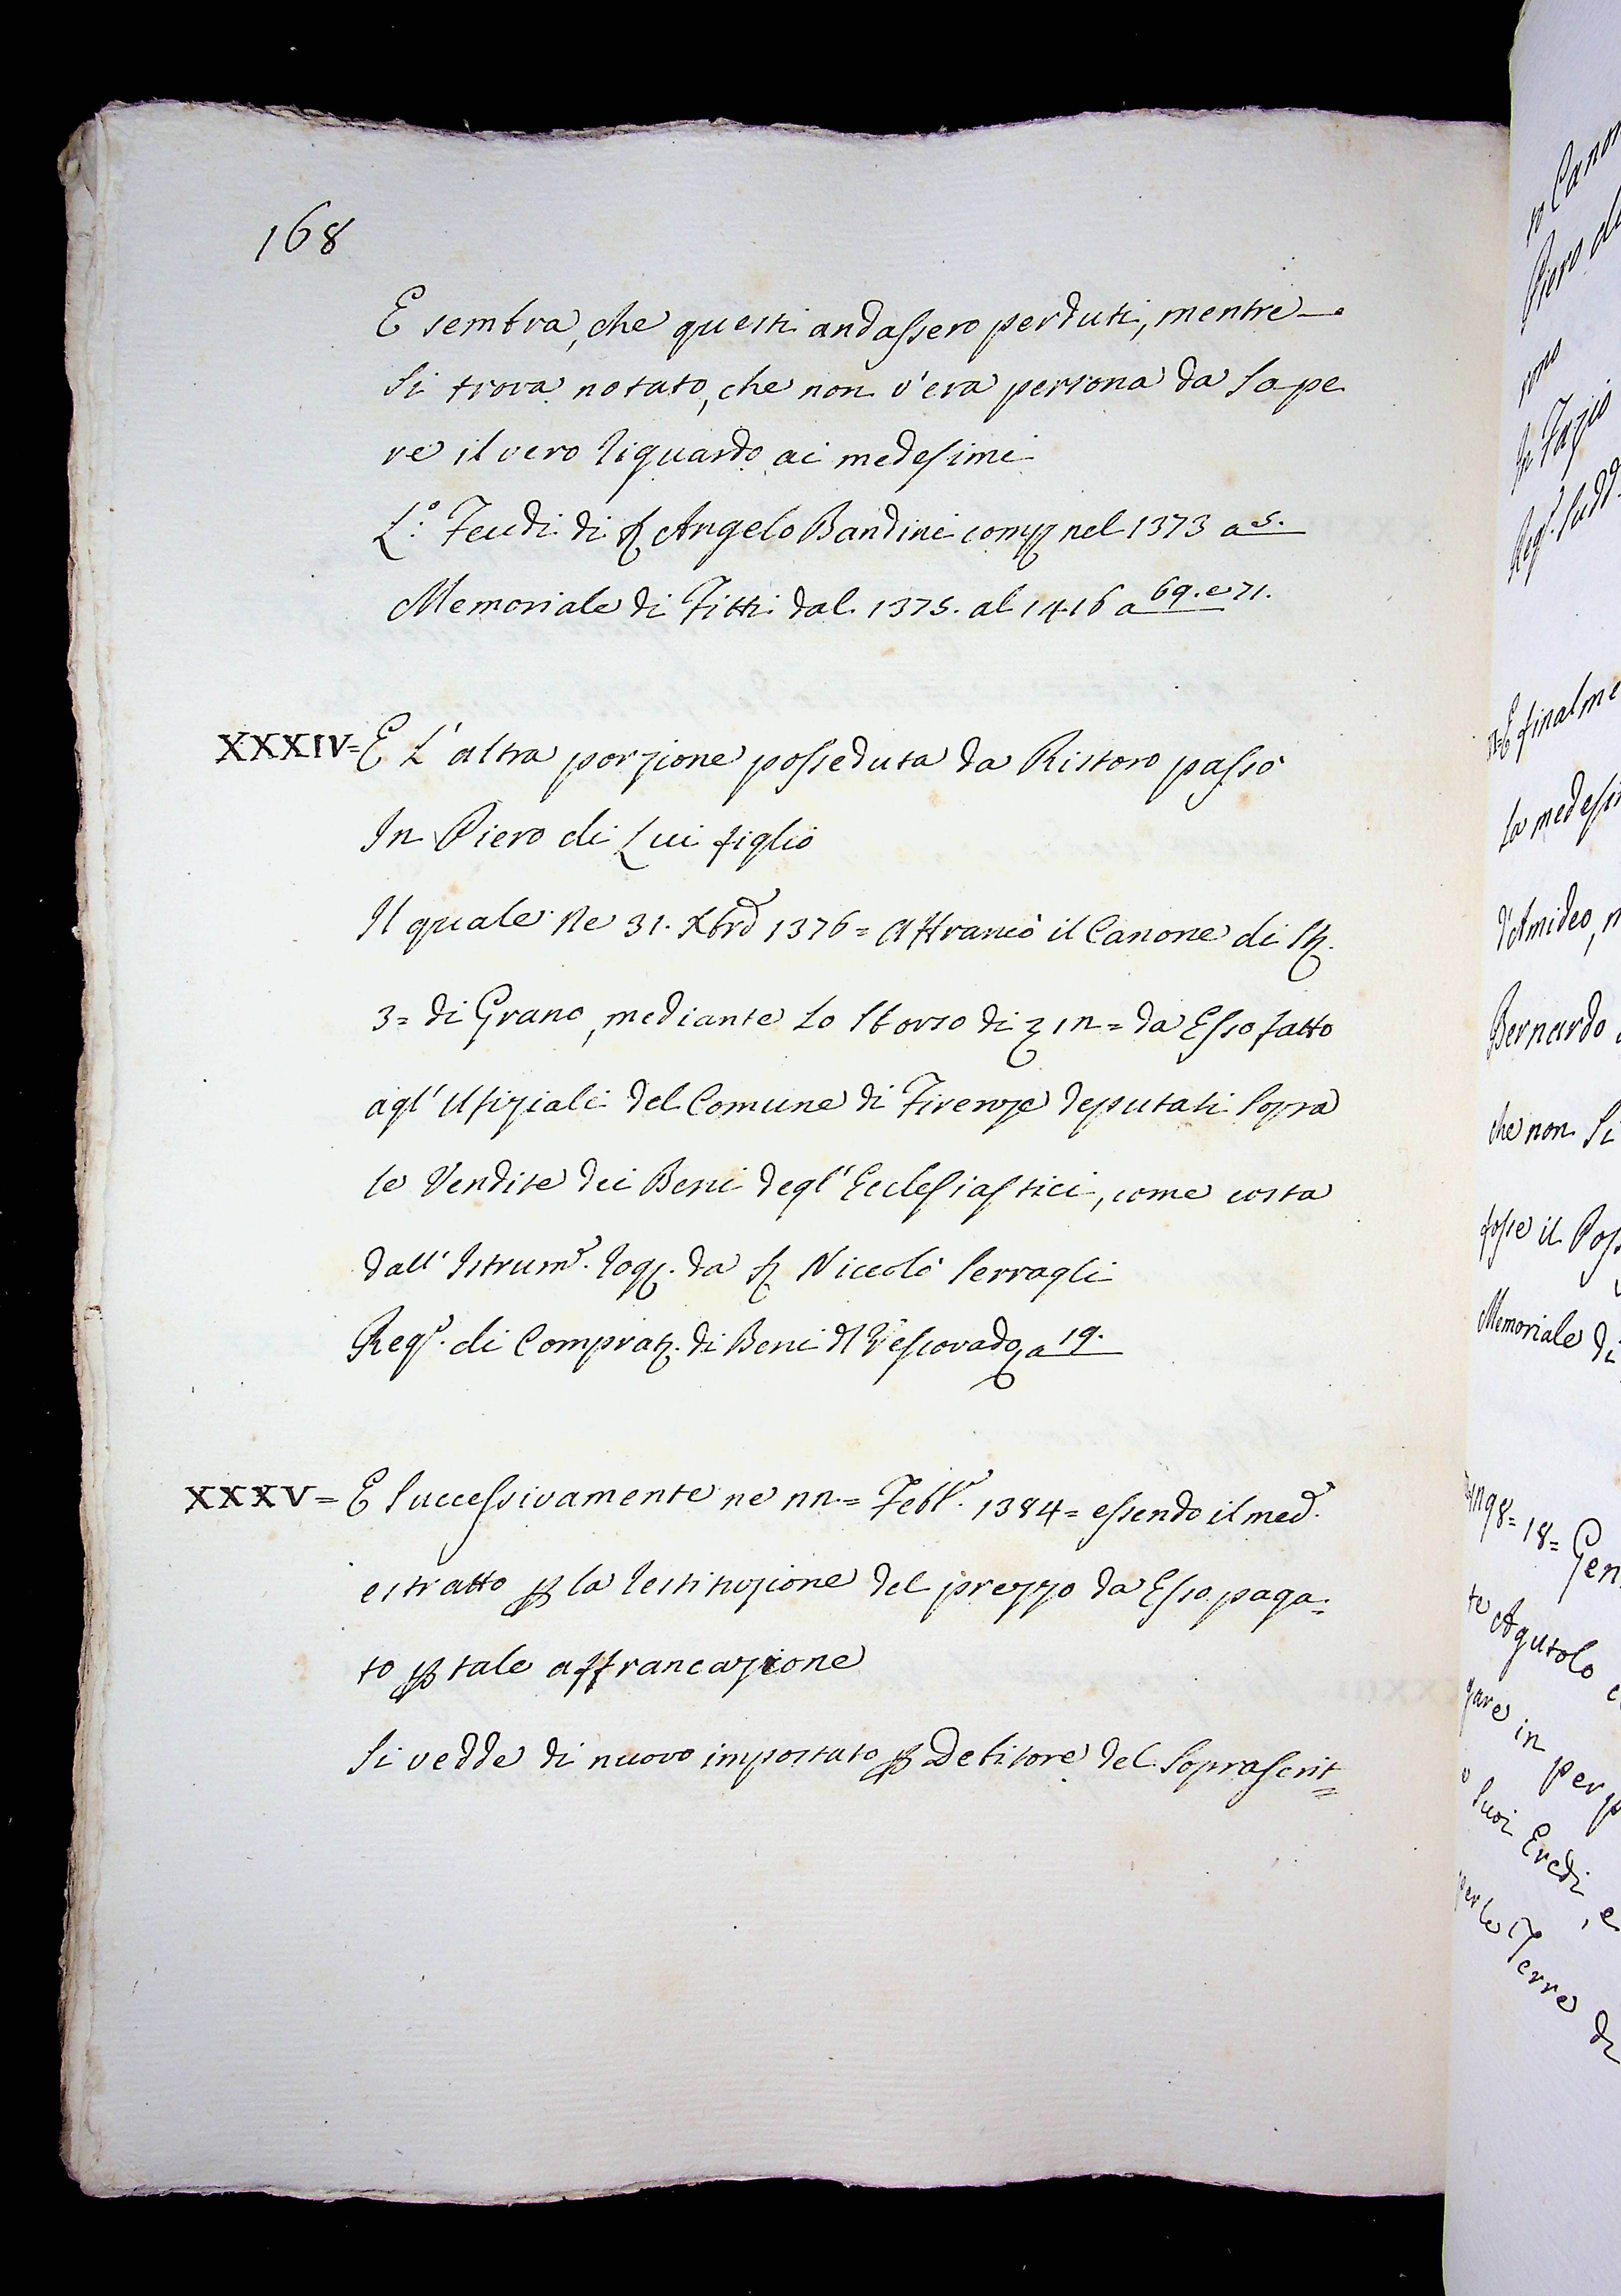 168
E sembra, che questi andassero perduti, mentre
si trova notato, che non v'era persona da sape
re il vero riguardo ai medesimi
L.o Feudi di S. Angelo Bandini comp. nel 1373 a 5.
Memoriale di Fitti dal 1375. al 1416 a 69. e 71.
XXXIV= E L'altra porzione posseduta da Ristoro passò
In Piero di Lui figlio
Il quale Ne 31. Xbre 1376= Affrancò il Canone di St.
3= di Grano, mediante Lo Sborso di = da Esso fatto
agl'Ufiziali del Comune di Firenze deputati sopra
le Vendite dei Beni degl'Ecclesiastici, come costa
dall'Istrum.o rog. da S. Niccolò Serragli
Reg.o di Comprat. di Beni del Vescovado a 19.
XXXV= E successivamente ne = Febb.o 1384= essendo il med.o
estratto p la restituzione del prezzo da Esso paga=
to p tale affrancazione
Si vedde di nuovo impostato p Debitore del Soprascrit=
Canon
Piero di
Fazio
E finalme
La medesi
d'Amideo, n
Bernardo
che non Si
fosse il Pos
Memoriale di
18= Gen
te Agutolo
gare in perp
suoi Eredi, e
per le Terre di